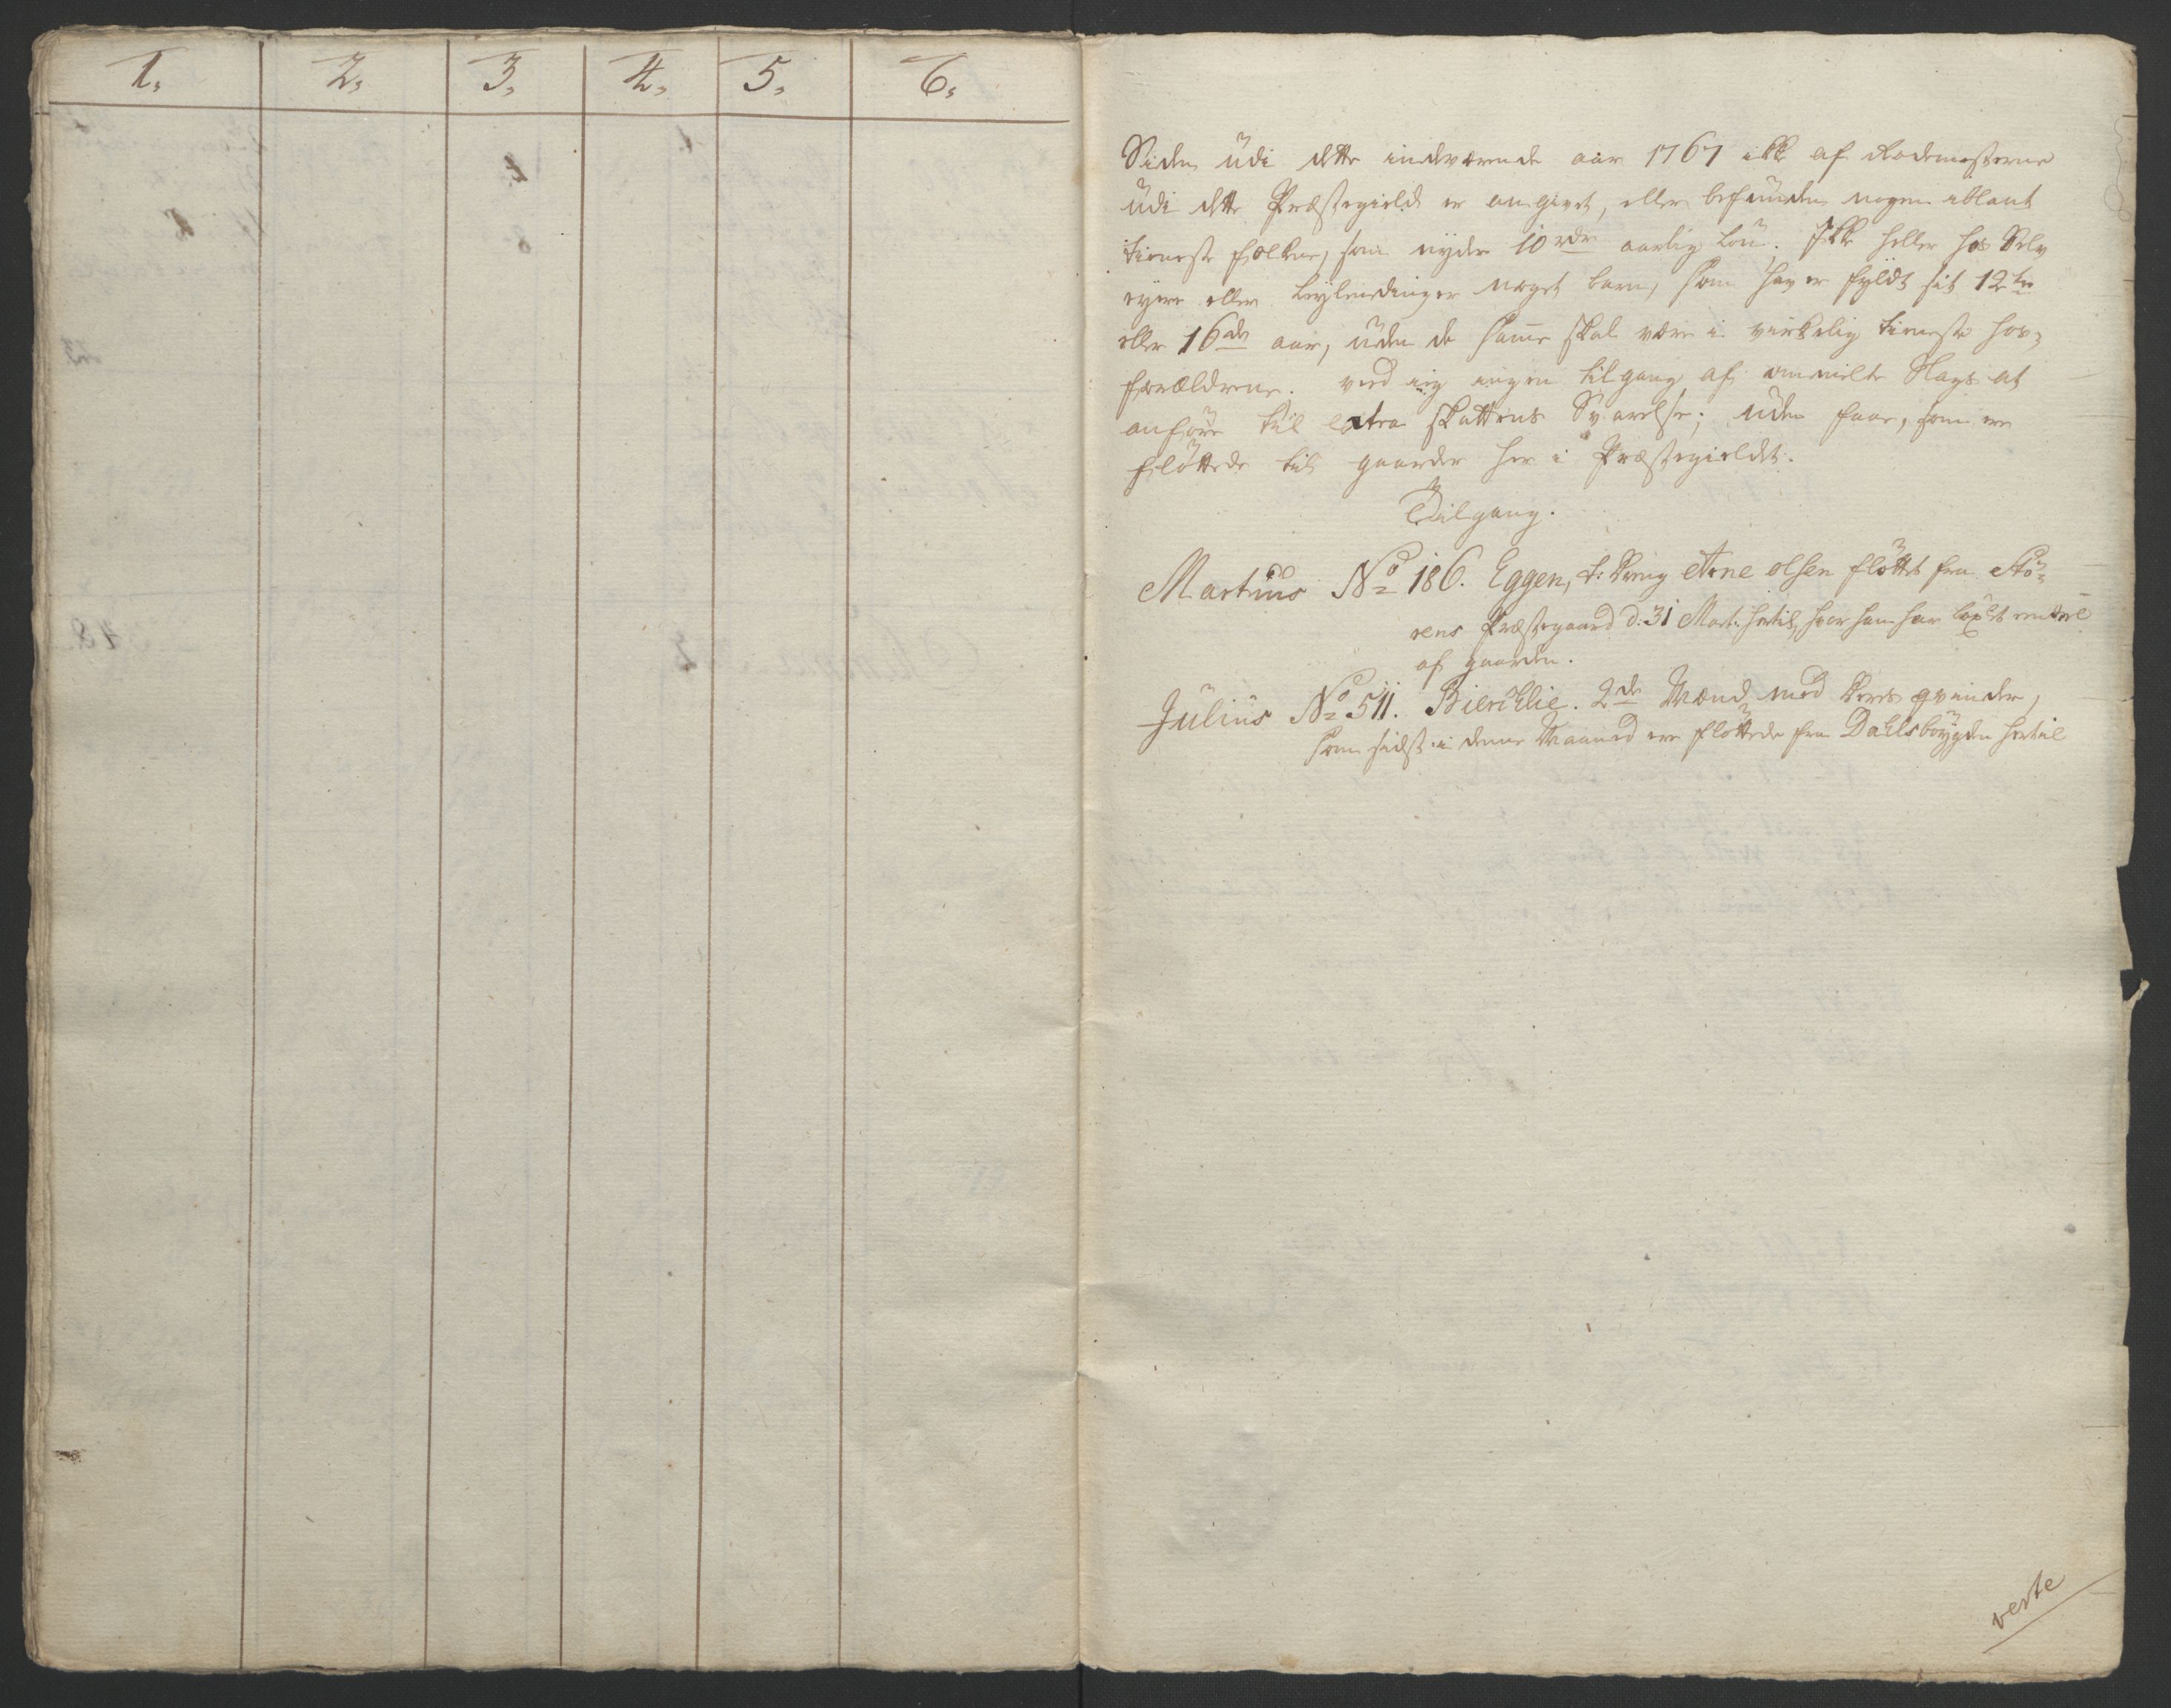 1. 2. 3. 4. 5. 6.
Siden udi dette indværende aar 1767 ikke af Rodemesterne
udi dette Præstegield er angivet, eller befunden nogen iblant
tieneste folkene, som nyder 10 rdr aarlig Løn. Ikke heller hos Selv
eyere eller Leylendinger noget barn, som haver fyldt sit 12te
eller 16de aar, uden de samme skal være i virkelig tieneste hos
forældrene. veed ieg ingen tilgang af anmelte Slags at
anføre til Extra Skattens Svarelse; uden faae, som ere
fløttede til gaarder her i Præstegieldet.
Tilgang.
Martius No 186. Eggen, t: Dreng Arne Olsen fløttet fra Stö-
rens Præstegaard d: 31 Mart: hertil, hvor han har
af gaarden.
Julius No 511. Bierchlie. 2de Mænd med deres qvinder,
som sidst i denne Maaned ere fløttede fra Dahlsbøygden hertil
verte